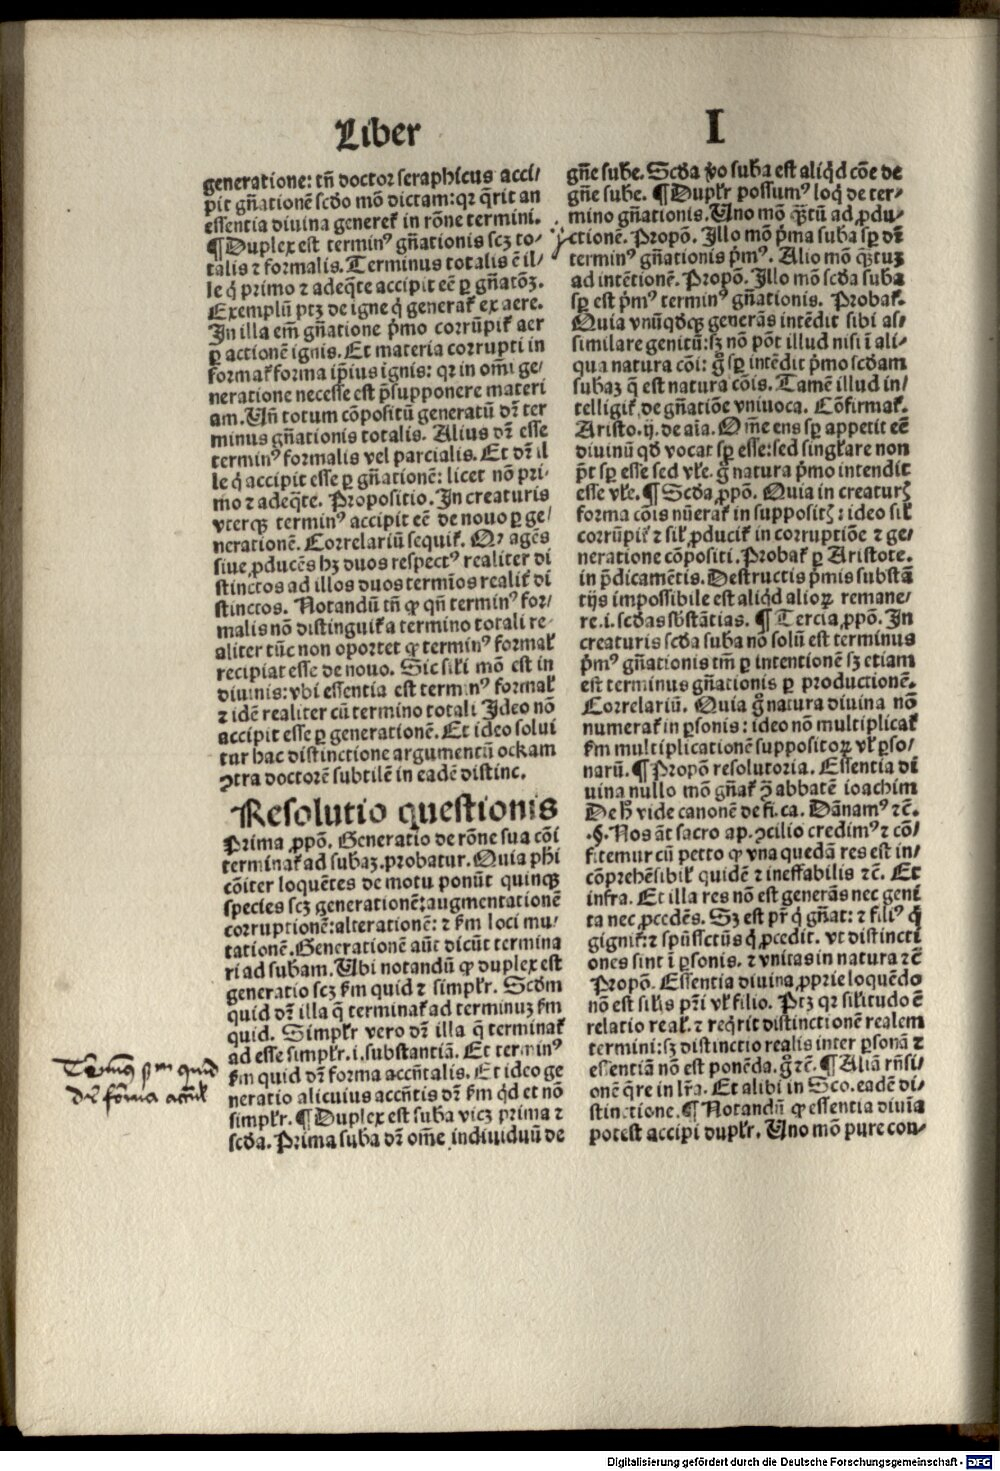 Liber
I
generatione: tñ doctor seraphicus acci⸗
pit gñationē scd̄o mō dictam: qꝛ q̄rit an
essentia diuina generet᷑ in rōne termini.
¶ Duplex est terminꝰ gñationis scꝫ to⸗
talis ⁊ formalis. Terminus totalis ē il⸗
le q̇ primo ⁊ adeq̄te accipit eē ꝑ gñatōꝫ.
Exemplū ptꝫ de igne q̇ generat᷑ ex aere.
In illa em̄ gñatione p̄mo corrūpit᷑ aer
ꝑ actionē ignis. Et materia corrupti in
format᷑ forma ip̄ius ignis: qꝛ in om̄i ge⸗
neratione necesse est p̄supponere materi
am. Uñ totum cōpositū generatū dꝛ̄ ter
minus gñationis totalis. Alius dꝛ̄ esse
terminꝰ formalis vel parcialis. Et dꝛ̄ il
le q̇ accipit esse ꝑ gñationē: licet nō pri⸗
mo ⁊ adeq̄te. Propositio. In creaturis
vterqꝫ terminꝰ accipit eē de nouo ꝑ ge⸗
nerationē. Correlariū sequit᷑. Qꝛ agēs
siue ꝓducēs hꝫ duos respectꝰ realiter di
stinctos ad illos duos termīos realit᷑ di
stinctos. Notandū tñ ꝙ qñ terminꝰ for⸗
malis nō distinguit᷑ a termino totali re⸗
aliter tūc non oportet ꝙ terminꝰ formał
recipiat esse de nouo. Sic siłi mō est in
diuinis: vbi essentia est terminꝰ formał
⁊ idē realiter cū termino totali Ideo nō
accipit esse ꝑ generationē. Et ideo solui
tur hac distinctione argumentū ockam
ↄtra doctorē subtilē in eadē distinc.
Resolutio questionis
Prima ꝓpō. Generatio de rōne sua cōi
terminat᷑ ad subaꝫ. probatur. Quia phi
cōiter loquētes de motu ponūt quinqꝫ
species scꝫ generationē: augmentationē
corruptionē: alterationē: ⁊ ẜm loci mu⸗
tationē. Generationē aūt dicūt termina
ri ad subam. Ubi notandū ꝙ duplex est
generatio scꝫ ẜm quid ⁊ simplr̄. Scd̄m
quid dꝛ̄ illa q̄ terminat᷑ ad terminuꝫ ẜm
quid. Simplr̄ vero dꝛ̄ illa q̄ terminat᷑
ad esse simplr̄. i. substantiā. Et terminꝰ
ẜm quid dꝛ̄ forma accñtalis. Et ideo ge
neratio alicuius accñtis dꝛ̄ ẜm q̇d et nō
simplr̄. ¶ Duplex est suba vicꝫ prima ⁊
scd̄a. Prima suba dꝛ̄ om̄e indiuiduū de
gñe sube. Scd̄a v̊o suba est aliq̇d cōe de
gñe sube. ¶ Duplr̄ possumꝰ loq̇ de ter⸗
mino gñationis. Uno mō q̄ꝫtū ad ꝓdu⸗
ctionē. Propō. Illo mō p̄ma suba sꝑ dꝛ̄
terminꝰ gñationis p̄mꝰ. Alio mō q̄ꝫtuꝫ
ad intētionē. Propō. Illo mō scd̄a suba
sꝑ est p̄mꝰ terminꝰ gñationis. Probat᷑.
Quia vnūqd̄qꝫ generās intēdit sibi as⸗
similare genitū: sꝫ nō pōt illud nisi ī ali⸗
qua natura cōi: g̊ sꝑ intēdit p̄mo scd̄am
subaꝫ q̄ est natura cōis. Tamē illud in⸗
telligit᷑ de gñatiōe vniuoca. Cōfirmat᷑.
Aristo. ij. de aīa. Om̄e ens sꝑ appetit eē
diuinū qd̄ vocat sꝑ esse: sed singłare non
p̄t sꝑ esse sed vłe. g̊ natura p̄mo intendit
esse vłe. ¶ Scd̄a ꝓpō. Quia in creaturꝭ
forma cōis nūerat᷑ in suppositꝭ: ideo sił
corrūpit᷑ ⁊ sił ꝓducit᷑ in corruptiōe ⁊ ge⸗
neratione cōpositi. Probat᷑ ꝑ Aristote.
in p̄dicamētis. Destructis p̄mis substā
tijs impossibile est aliq̇d alioꝝ remane⸗
re. i. scd̄as sb̄stātias. ¶ Tercia ꝓpō. In
creaturis scd̄a suba nō solū est terminus
p̄mꝰ gñationis tm̄ ꝑ intentionē sꝫ etiam
est terminus gñationis ꝑ productionē.
Correlariū. Quia g̊ natura diuina nō
numerat᷑ in ꝑsonis: ideo nō multiplicat᷑
ẜm multiplicationē suppositoꝝ vł ꝑso⸗
narū. ¶ Propō resolutoria. Essentia di
uina nullo mō gñat᷑ ↄ̄ abbatē ioachim
De h̄ vide canonē de fi. ca. Dānamꝰ ⁊c̄.
.§. Nos āt sacro ap. ↄcilio credimꝰ ⁊ cō⸗
fitemur cū petto ꝙ vna quedā res est in⸗
cōprehēsibił quidē ⁊ ineffabilis ⁊c̄. Et
infra. Et illa res nō est generās nec geni
ta nec ꝓcedēs. Sꝫ est pr̄ q̇ gñat: ⁊ filiꝰ q̇
gignit᷑: ⁊ spūssctūs q̇ ꝓcedit. vt distincti
ones sint ī ꝑsonis. ⁊ vnitas in natura ⁊c̄
Propō. Essentia diuina ꝓprie loquēdo
nō est siłis pr̄i vł filio. Ptꝫ qꝛ siłitudo ē
relatio reał. ⁊ req̇rit distinctionē realem
termini: sꝫ distinctio realis inter ꝑsonā ⁊
essentiā nō est ponēda. g̊ ⁊c̄. ¶ Aliā rñsi⸗
onē q̄re in lr̄a. Et alibi in Sco. eadē di⸗
stinctione. ¶ Notandū ꝙ essentia diuīa
potest accipi duplr̄. Uno mō pure con⸗
quid
forma
Digitalisierung gefördert durch die Deutsche Forschungsgemeinschaft - DFG